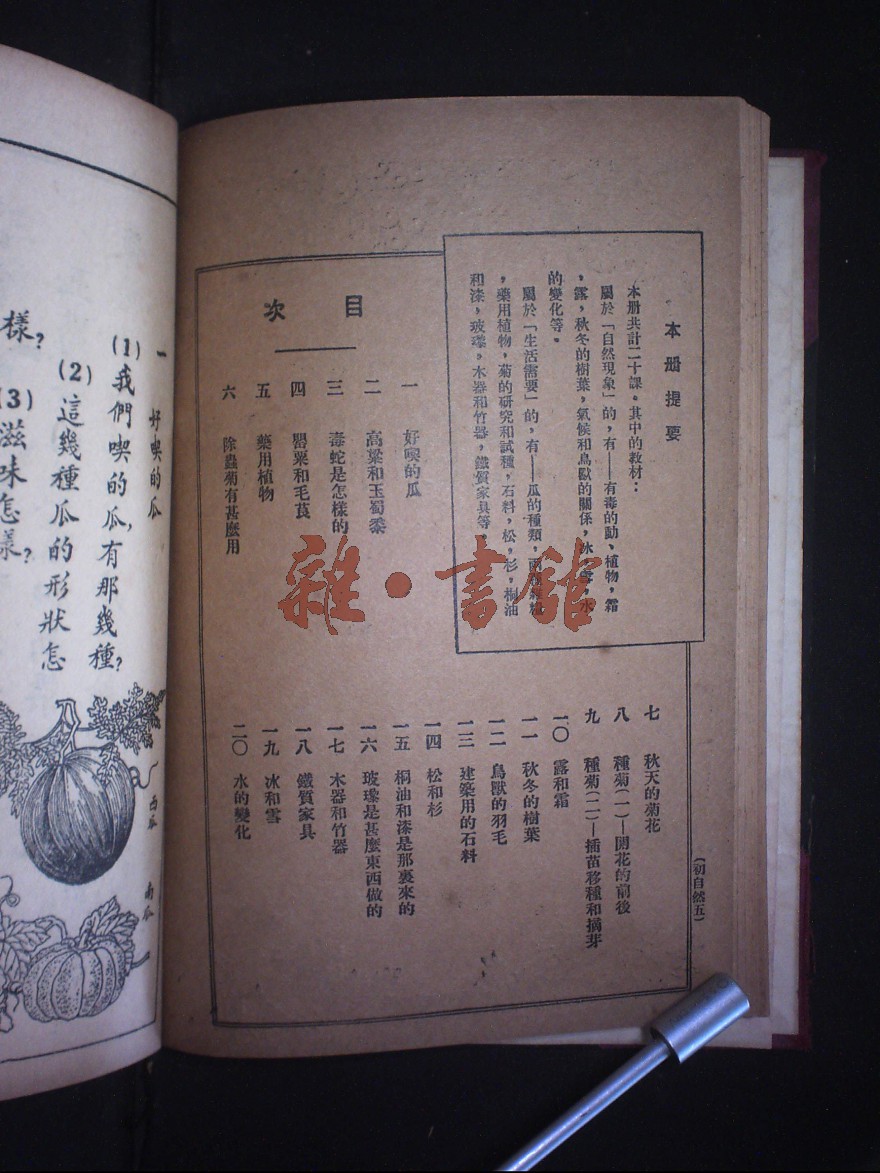 本册提要
本册共計二十課。其中的教材：
屬於「自然現象」的，有——有毒的動、植物，霜
，露，秋冬的樹葉，氣候和鳥獸的關係，冰雪，水
的變化等。
屬於「生活需要」的，有——瓜的種類，
，藥用植物，菊的研究和試種，石料，松，杉，桐油
和漆，玻瓈，木器和竹器，鐵質家具等。
目次
一 好喫的瓜
二 高粱和玉蜀黍
三 毒蛇是怎樣的
四 罌粟和毛茛
五 藥用植物
六 除蟲菊有甚麼用
七 秋天的菊花
八 種菊(一)—開花的前後
九 種菊(二)—插苗移種和摘芽
一〇 露和霜
一一 秋冬的樹葉
一二 鳥獸的羽毛
一三 建築用的石料
一四 松和杉
一五 桐油和漆是那裏來的
一六 玻瓈是甚麼東西做的
一七 木器和竹器
一八 鐵質家具
一九 冰和雪
二〇 水的變化
(初自然五)
一 好喫的瓜
(1)我們喫的瓜，有那幾種？
(2)這幾種瓜的形狀怎
樣？
(3)滋味怎樣？
西瓜
南瓜
雜·書館